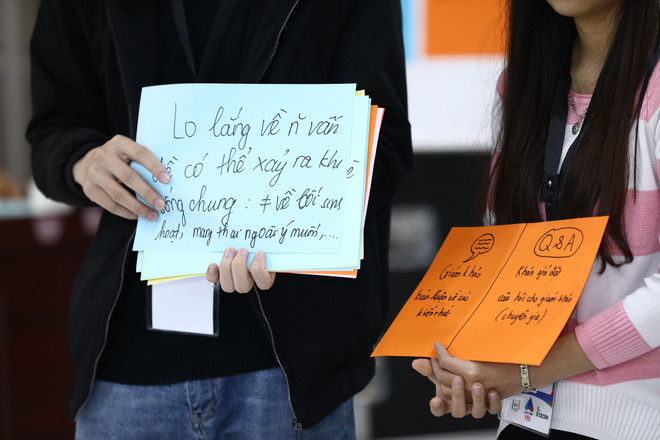 Lo lắng về ñ vấn
đề có thể xảy ra khi
sống chung: ≠ về lối sinh
hoạt, mang thai ngoài ý muốn,....
Giám khảo
bàn luận về các
kiến thức
Q&A
Khán giả đặt
câu hỏi cho giám khảo
(chuyên gia)